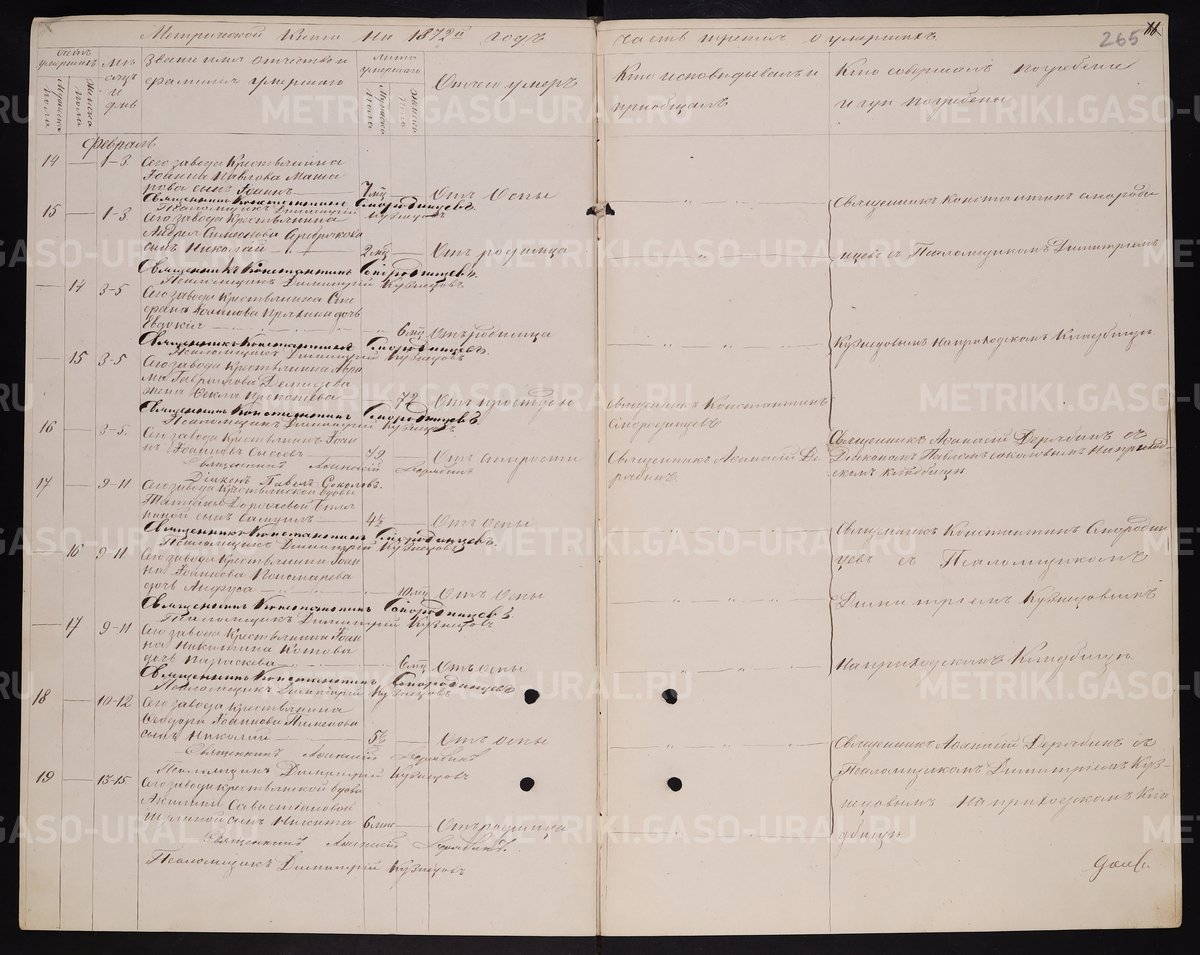 Метрической Книги на 1872й годъ
часть третья о умершихъ
265
11
Счетъ умершихъ
Мужеска пола
Женска пола
Мѣсяцъ и день
Званіе имя отчество и
фамилія умершаго
Лѣта умершаго
Мужеска пола
Женска пола
Отъ чего умеръ
Кто исповѣдывалъ и
пріобщалъ
Кто совершалъ погребеніе
и гдѣ погребены
Февраль
14 1-3 Сего завода Крестьянина
Іоанна Павлова
сынъ Іоаннъ 7 мц Отъ Оспы
Священникъ Константинъ Смородинцевъ.
Псаломщикъ Димитрій Кузнецовъ
15 1-3 Сего завода Крестьянина
Андрея Симеонова
сынъ Николай 2 мц Отъ родимца
Священникъ Константинъ Смородинцевъ.
Псаломщикъ Димитрій Кузнецовъ
Священникъ Константинъ Смороди
нцевъ съ Псаломщикомъ Димитріемъ
14 3-5 Сего завода Крестьянина Сте
фана Іоаннова дочь
Евдокія 6 мц Отъ Родимца
Священникъ Константинъ Смородинцевъ.
Псаломщикъ Димитрій Кузнецовъ
Кузнецовымъ На приходскомъ Кладбищѣ
15 3-5 Сего завода Крестьянина
Гаврилова Демидова
жена 72 Отъ простуды
Священникъ Константинъ
Смородинцевъ
Священникъ Константинъ Смородинцевъ.
Псаломщикъ Димитрій Кузнецовъ.
16 3-5. Сего завода Крестьянинъ Іоан
нъ Іоанновъ Сысоевъ 79 Отъ старости
Священникъ Аѳанасій Де
рябинъ
Священникъ Аѳанасій Дерябинъ съ
Діакономъ Павломъ Соколовымъ На приход-
скомъ кладбищѣ
Священникъ Аѳанасій Дерябинъ
Діаконъ Павелъ Соколовъ.
17 9-11 Сего завода Крестьянской вдовы
сынъ Самуилъ 4½ Отъ оспы
Священникъ Константинъ Смородинцевъ.
Псаломщикъ Димитрій Кузнецовъ.
Священникъ Константинъ Смородин
цевъ съ Псаломщикомъ
16 9-11 Сего завода Крестьянина Іоан
на Іоаннова Пономарева
дочь Анфуса 10 мц Отъ Оспы
Священникъ Константинъ Смородинцевъ.
Псаломщикъ Димитрій Кузнецовъ
Димитріемъ Кузнецовымъ
17 9-11 Сего завода Крестьянина Іоан
на Никитина Котова
дочь Параскева 6 мц Отъ оспы
Священникъ Константинъ Смородинцевъ
Псаломщикъ Димитрій Кузнецовъ
На приходскомъ Кладбищѣ.
18 10-12 Сего завода крестьянина
Ѳеодора Іоаннова Пименова
сынъ Николай 5½ Отъ оспы
Священникъ Аѳанасій Дерябинъ
Псаломщикъ Димитрій Кузнецовъ
Священникъ Аѳанасій Дерябинъ съ
Псаломщикомъ Димитріемъ Куз-
19 13-15 Сего завода крестьянской вдовы
Акилины Савастіановой
сынъ Никита 6 мц Отъ родимца
нецовымъ На приходскомъ Кла
дбищѣ
Священникъ Аѳанасій Дерябинъ.
Псаломщикъ Димитрій Кузнецовъ
METRIKI.GASO-URAL.RU